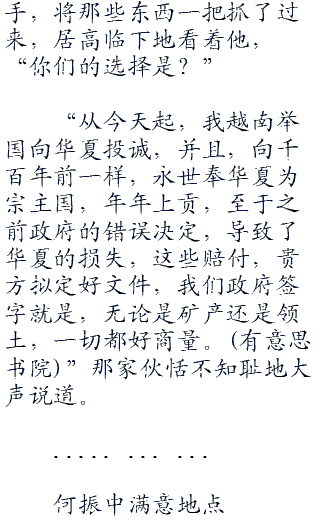 手，将那些东西一把抓了过
来，居高临下地看着他，
“你们的选择是？”
“从今天起，我越南举
国向华夏投诚，并且，向千
百年前一样，永世奉华夏为
宗主国，年年上贡，至于之
前政府的错误决定，导致了
华夏的损失，这些赔付，贵
方拟定好文件，我们政府签
字就是，无论是矿产还是领
土，一切都好商量。(有意思
书院)”那家伙恬不知耻地大
声说道。
..... ... ...
何振中满意地点